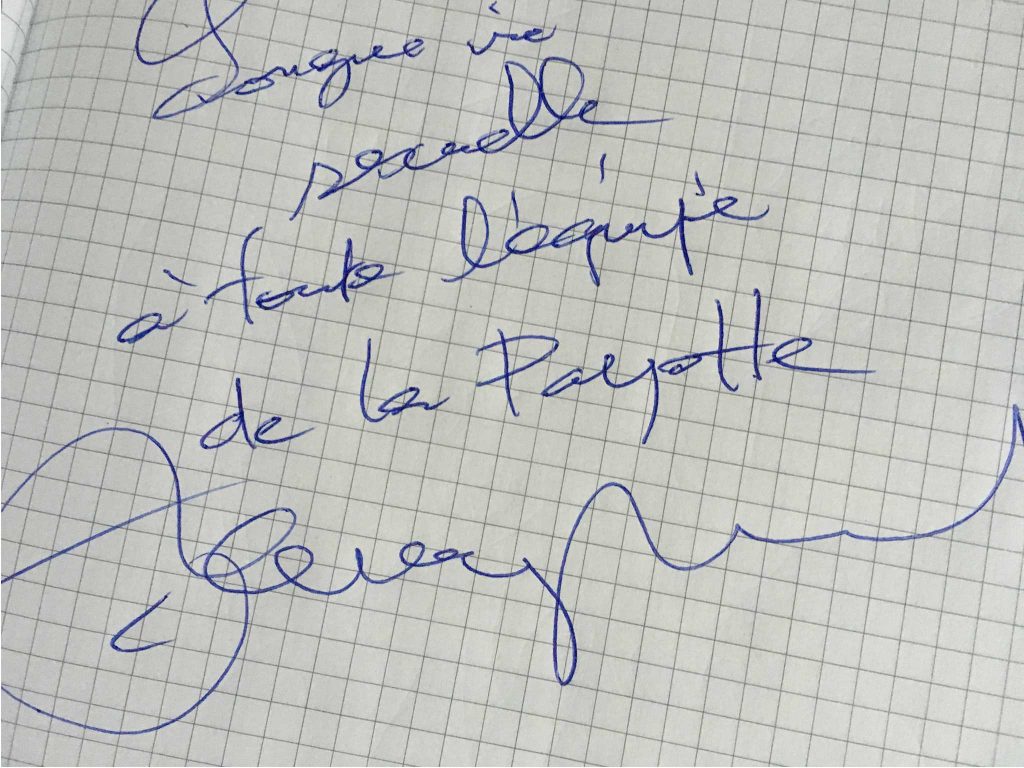 Longue vie
sexuelle
à toute l'équipe
de la Payotte